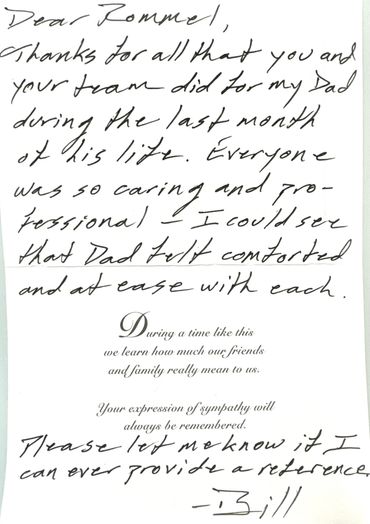 Dear Rommel,
Thanks for all that you and
your team did for my Dad
during the last month
of his life. Everyone
was so caring and pro-
fessional – I could see
that Dad felt comforted
and at ease with each.
During a time like this
we learn how much our friends
and family really mean to us.
Your expression of sympathy will
always be remembered.
Please let me know if I
can ever provide a reference
– Bill